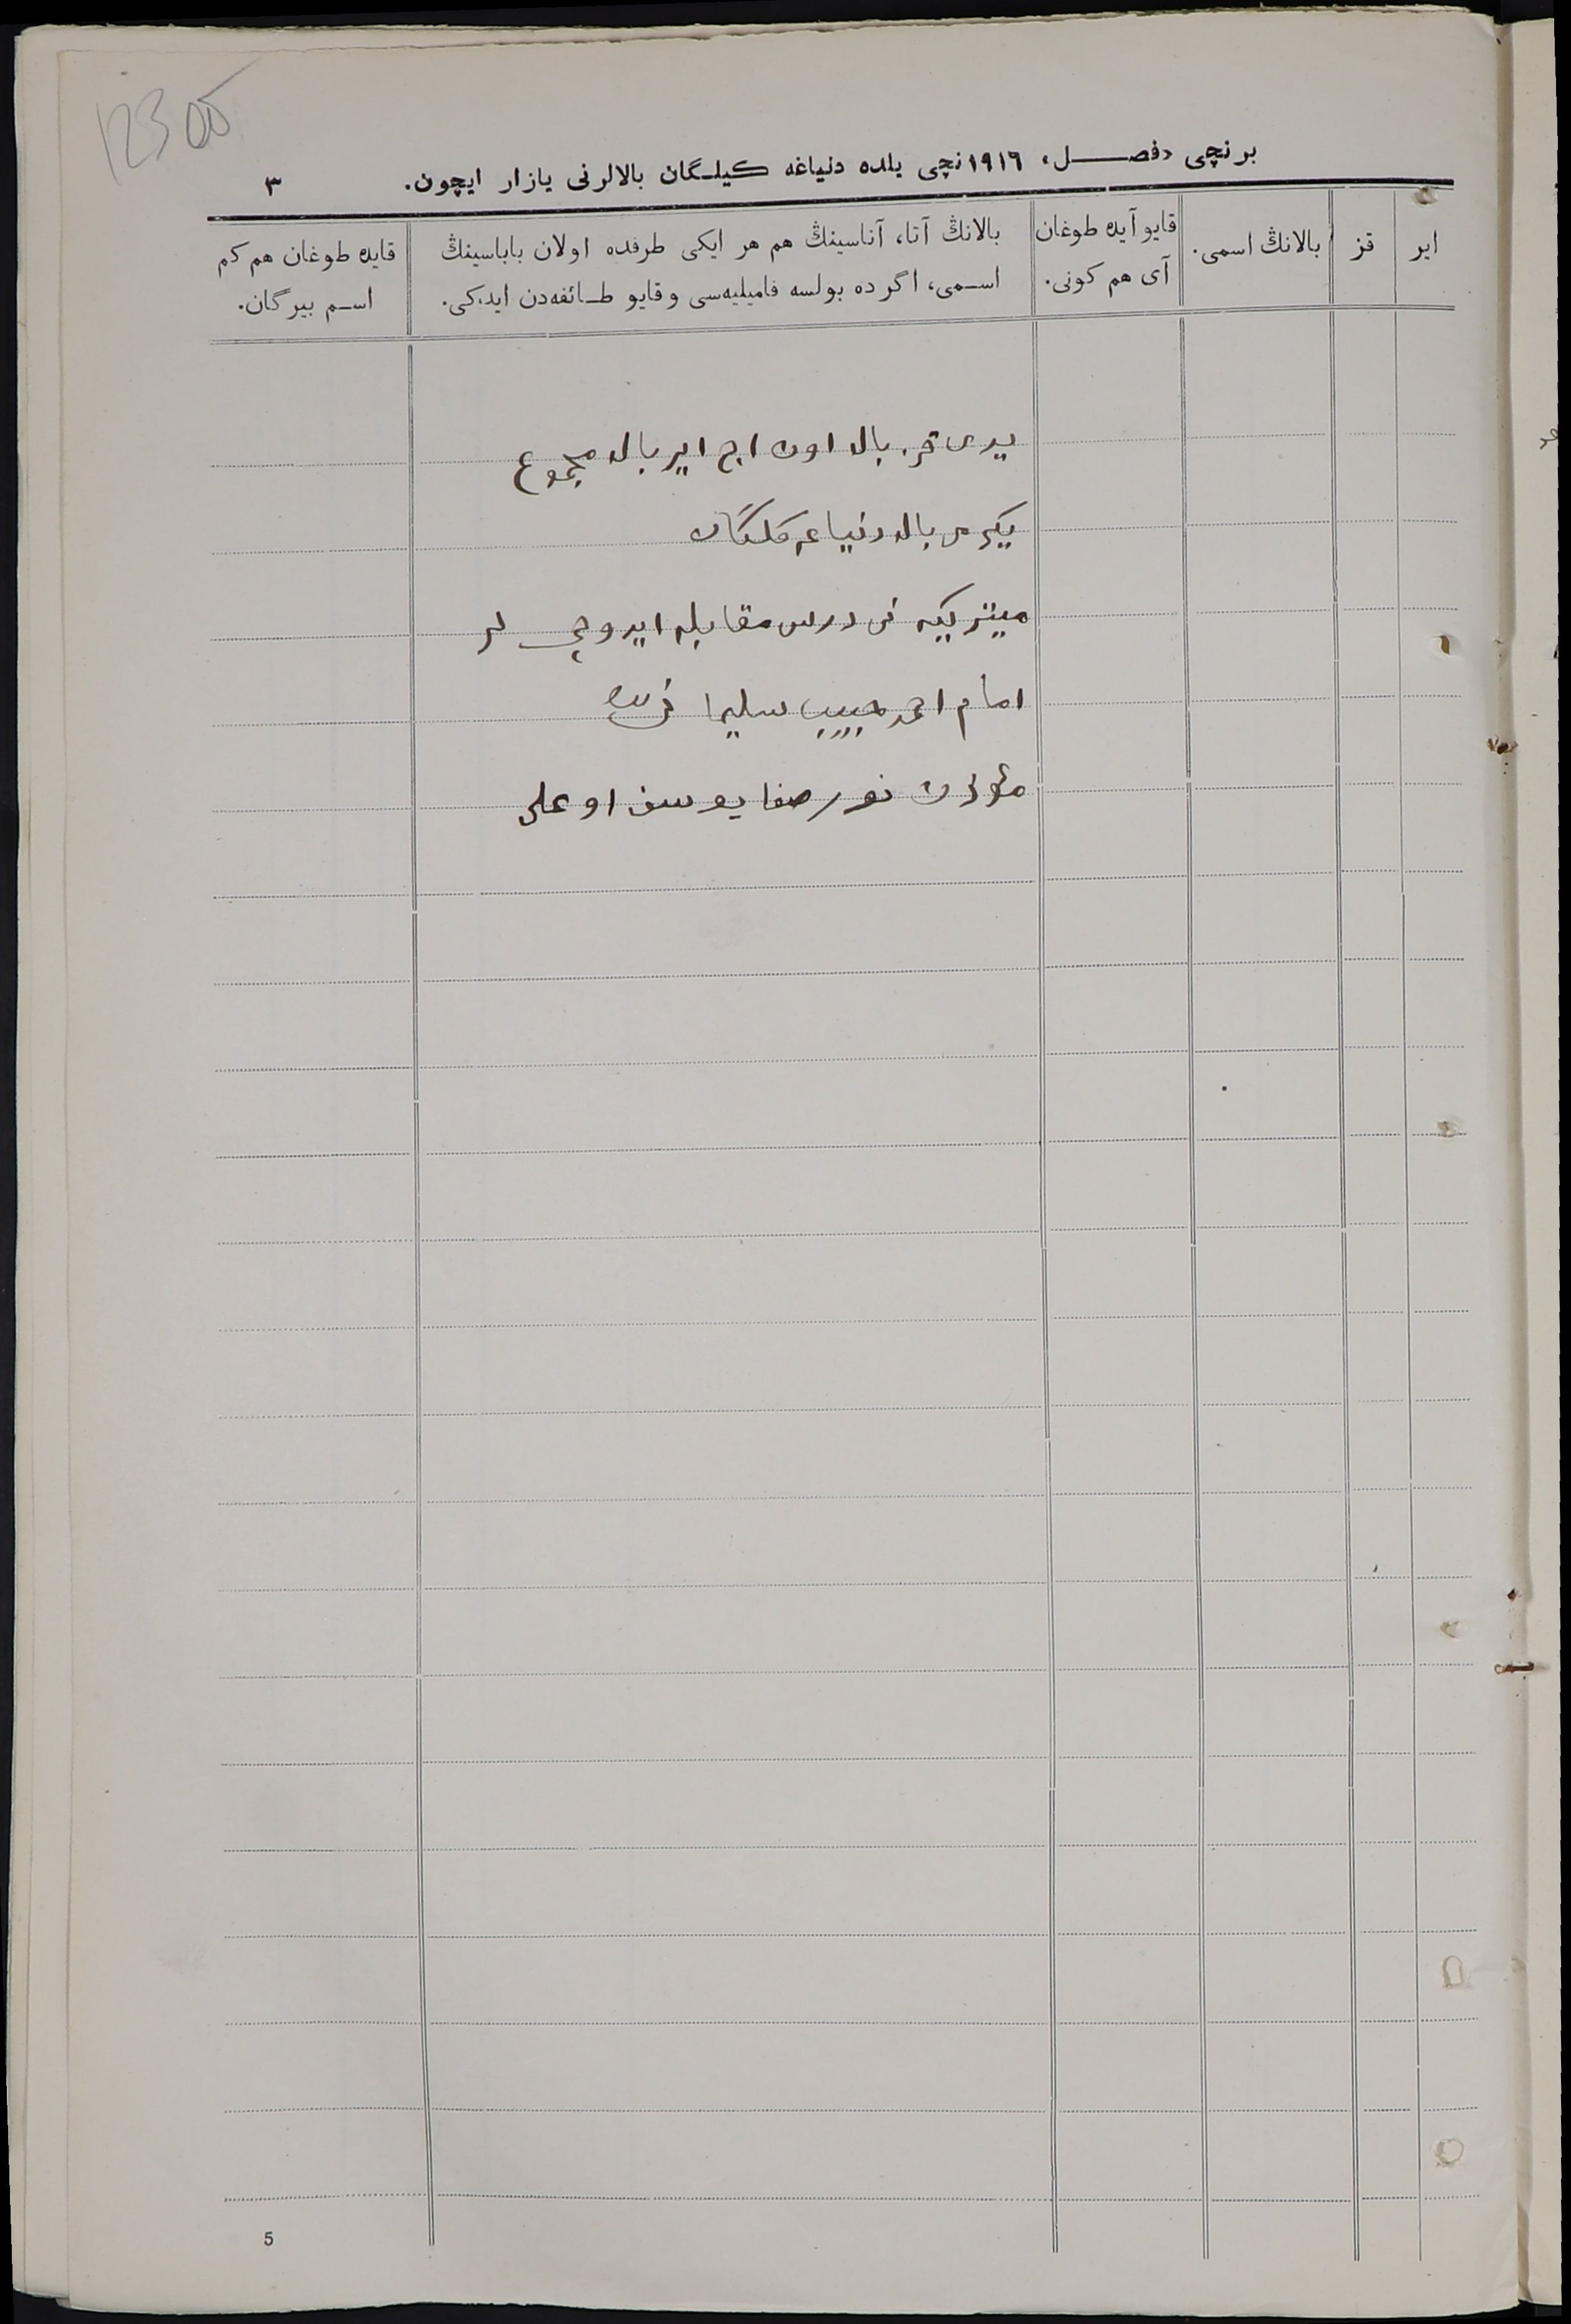 12300
برنچی «فصل» ١٩١٦نچی یلده دنیاغه کیلگان بالالرنی یازار ایچون. ٣
ایر
قز
بالانڭ اسمی.
قایو آیده طوغان
آی هم کونی.
بالانڭ آتا، آناسینڭ هم هر ایکی طرفده اولان باباسینڭ
اسمی، اگر ده بولسه فامیلیه‌سی و قایو طائفه‌دن ایدکی.
قایده طوغان هم کم
اسم بیرگان.
یدی قز بالا اون اچ ایر بالا مجموع
یکرمی بالا دنیاغه کلگان
میتریکه نی درس مقابله ایدوچی لر
امام احمد حبیب سلیما
مؤذن نورصفا یوسف اوغلی
5